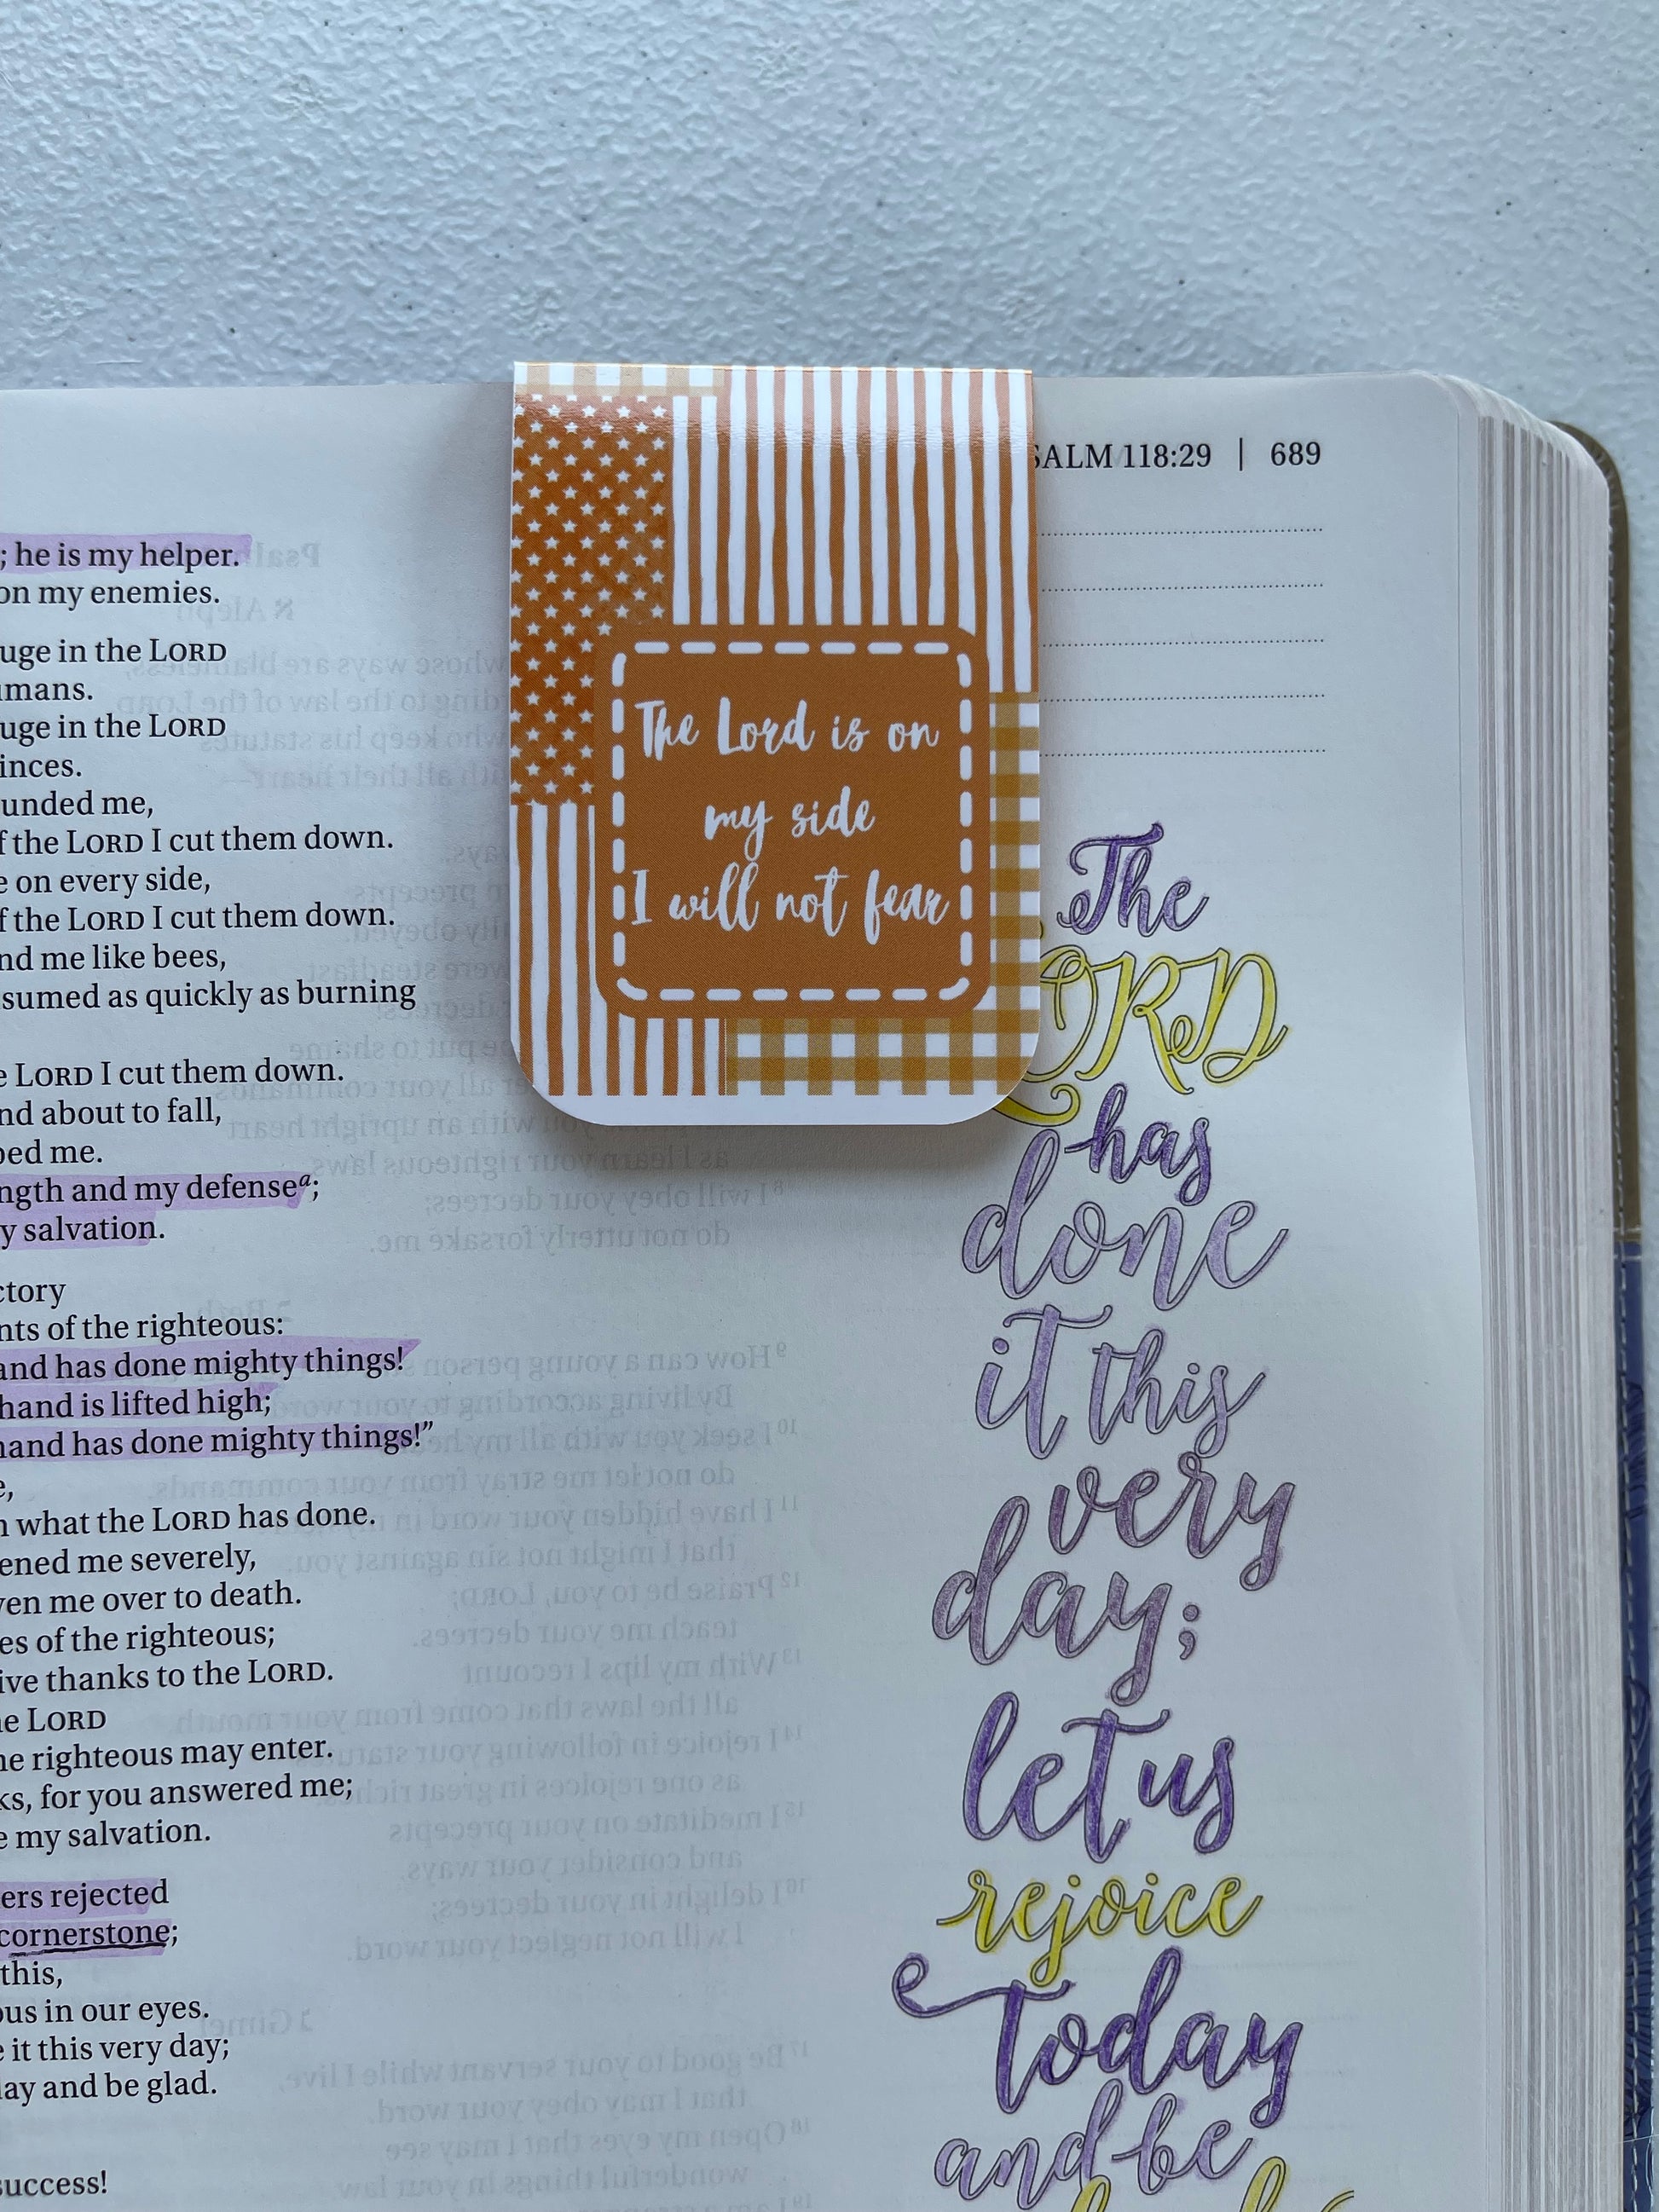 SALM 118:29 | 689
The Lord is on
my side
I will not fear
; he is my helper.
on my enemies.
uge in the LORD
umans.
uge in the LORD
inces.
unded me,
f the LORD I cut them down.
e on every side,
f the LORD I cut them down.
nd me like bees,
sumed as quickly as burning
e LORD I cut them down.
nd about to fall,
ped me.
ngth and my defenseᵃ;
y salvation.
ctory
nts of the righteous:
and has done mighty things!
hand is lifted high;
hand has done mighty things!”
e,
n what the LORD has done.
ened me severely,
ven me over to death.
es of the righteous;
ive thanks to the LORD.
he LORD
he righteous may enter.
ks, for you answered me;
e my salvation.
ers rejected
cornerstone;
this,
ous in our eyes.
e it this very day;
day and be glad.
success!
The
ORD
has
done
it this
very
day;
let us
rejoice
today
and be